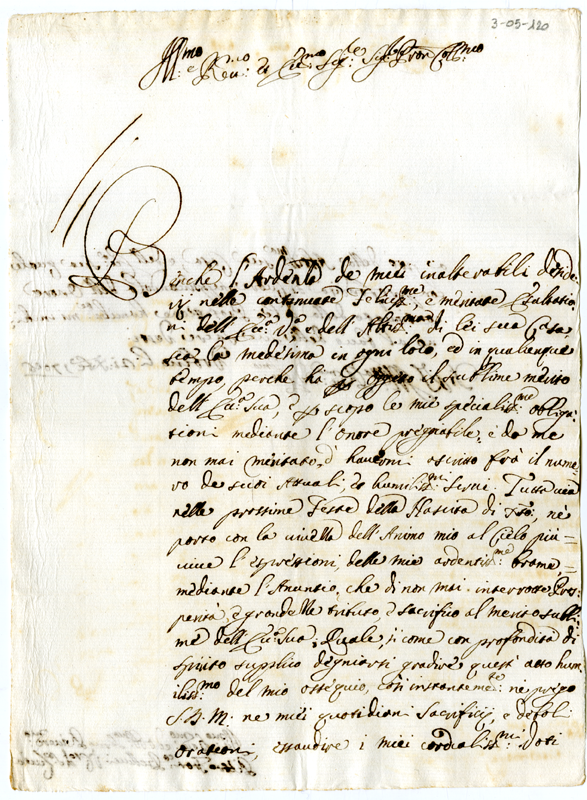 3-05-120
Ill:mo e Reu:mo
Benche l'Ardenza de miei inalterabili deside
rij nelle continuate Felicis:me, e meritate Esaltatio
ni dell'Ecc:a Va e dell' Altis:ma di lei sua Casa,
sia la medesima in ogni loco, ed in qualunque
tempo, perche ha per oggetto il sublime merito
dell'Ecc:a Sua, e per scopo le mie specialis:me obliga
tioni mediante l'onore pregiabile, e da me
non mai meritato, d'hauermi ascritto frà il nume
ro de suoi Attuali, ed humilis:mi Serui. Tutta uia
nelle prossime Feste della Nascita di
porto con la viuezza dell'Animo mio al Cielo più
viue l'espressioni delle mie ardentis:me brame,
mediante l'Anuntio, che di non mai interrotte Pros
perità, e grandezze tributo, e sacrifico al merito subli:
me dell'Ecc:a Sua; Quale, si come con profondità di
spirito supplico degniarsi gradire quest' atto hum
ilis:mo del mio ossequio, così instantemen:te ne priego
S. D. M: ne miei quotidiani Sacrificij, e deboli
orationi, essaudire i miei cordialis:mi Voti